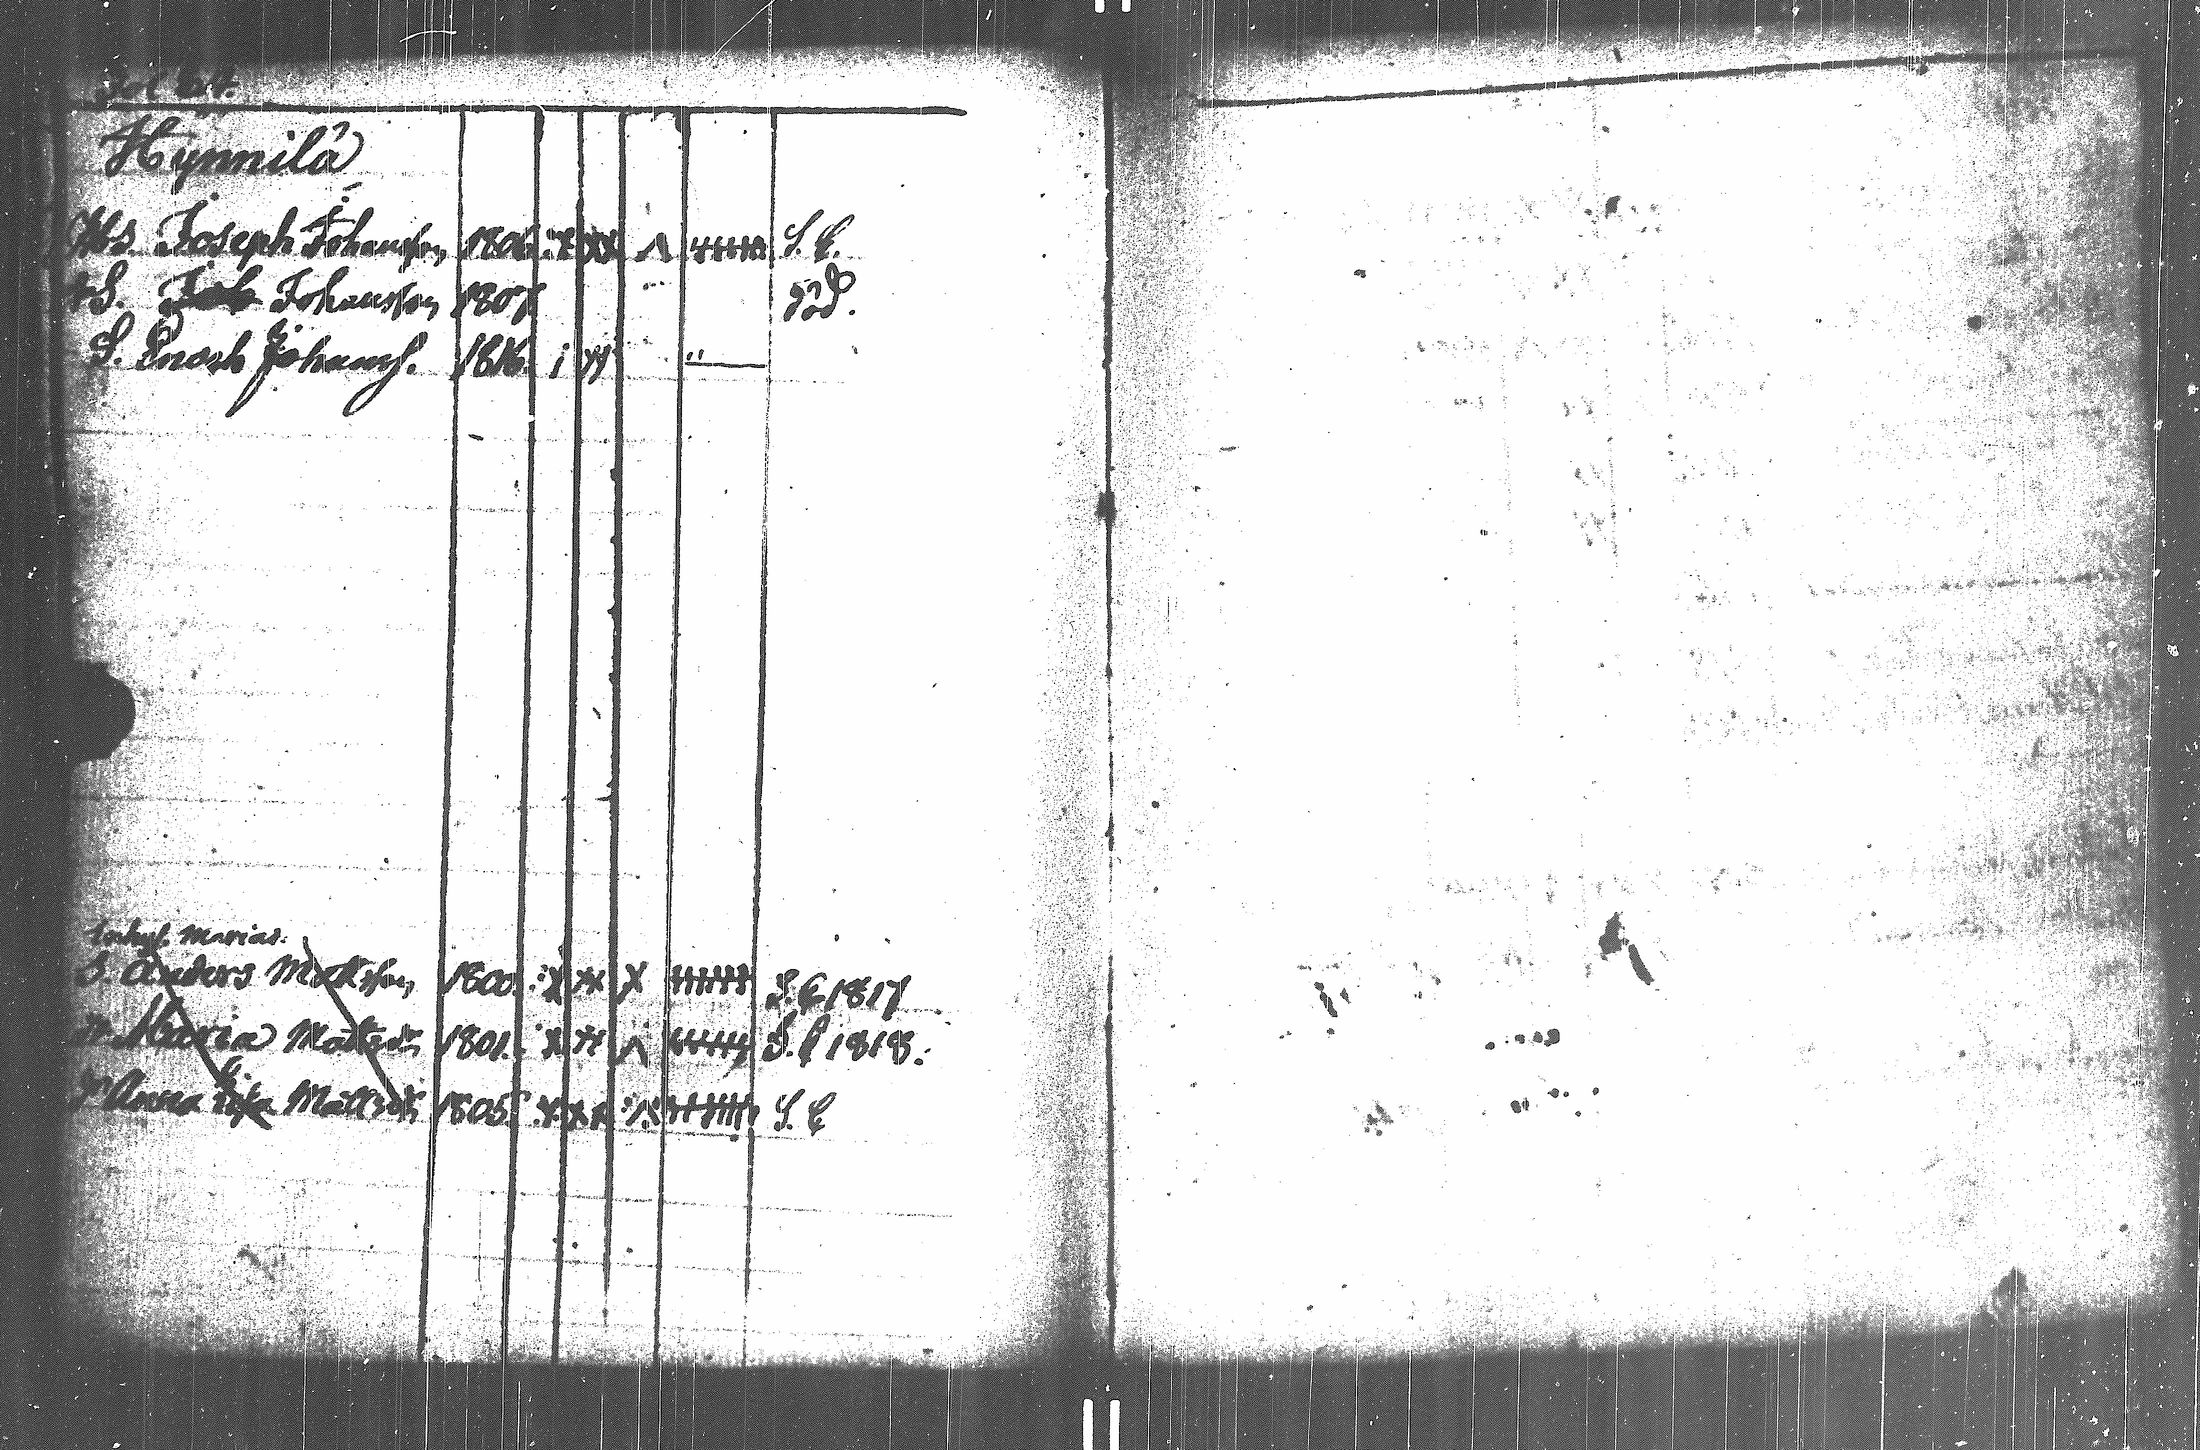 Hynnilä
Joseph Johansson 1806. S. C.
S. Johansson 1807 död.
S. Enoch Johanss. 1816.
Marias.
S. Anders Mattsson 1800. S. C 1817
Maria Mattsdr 1801. S. C 1818.
Anna Mattsdr 1805 S. C